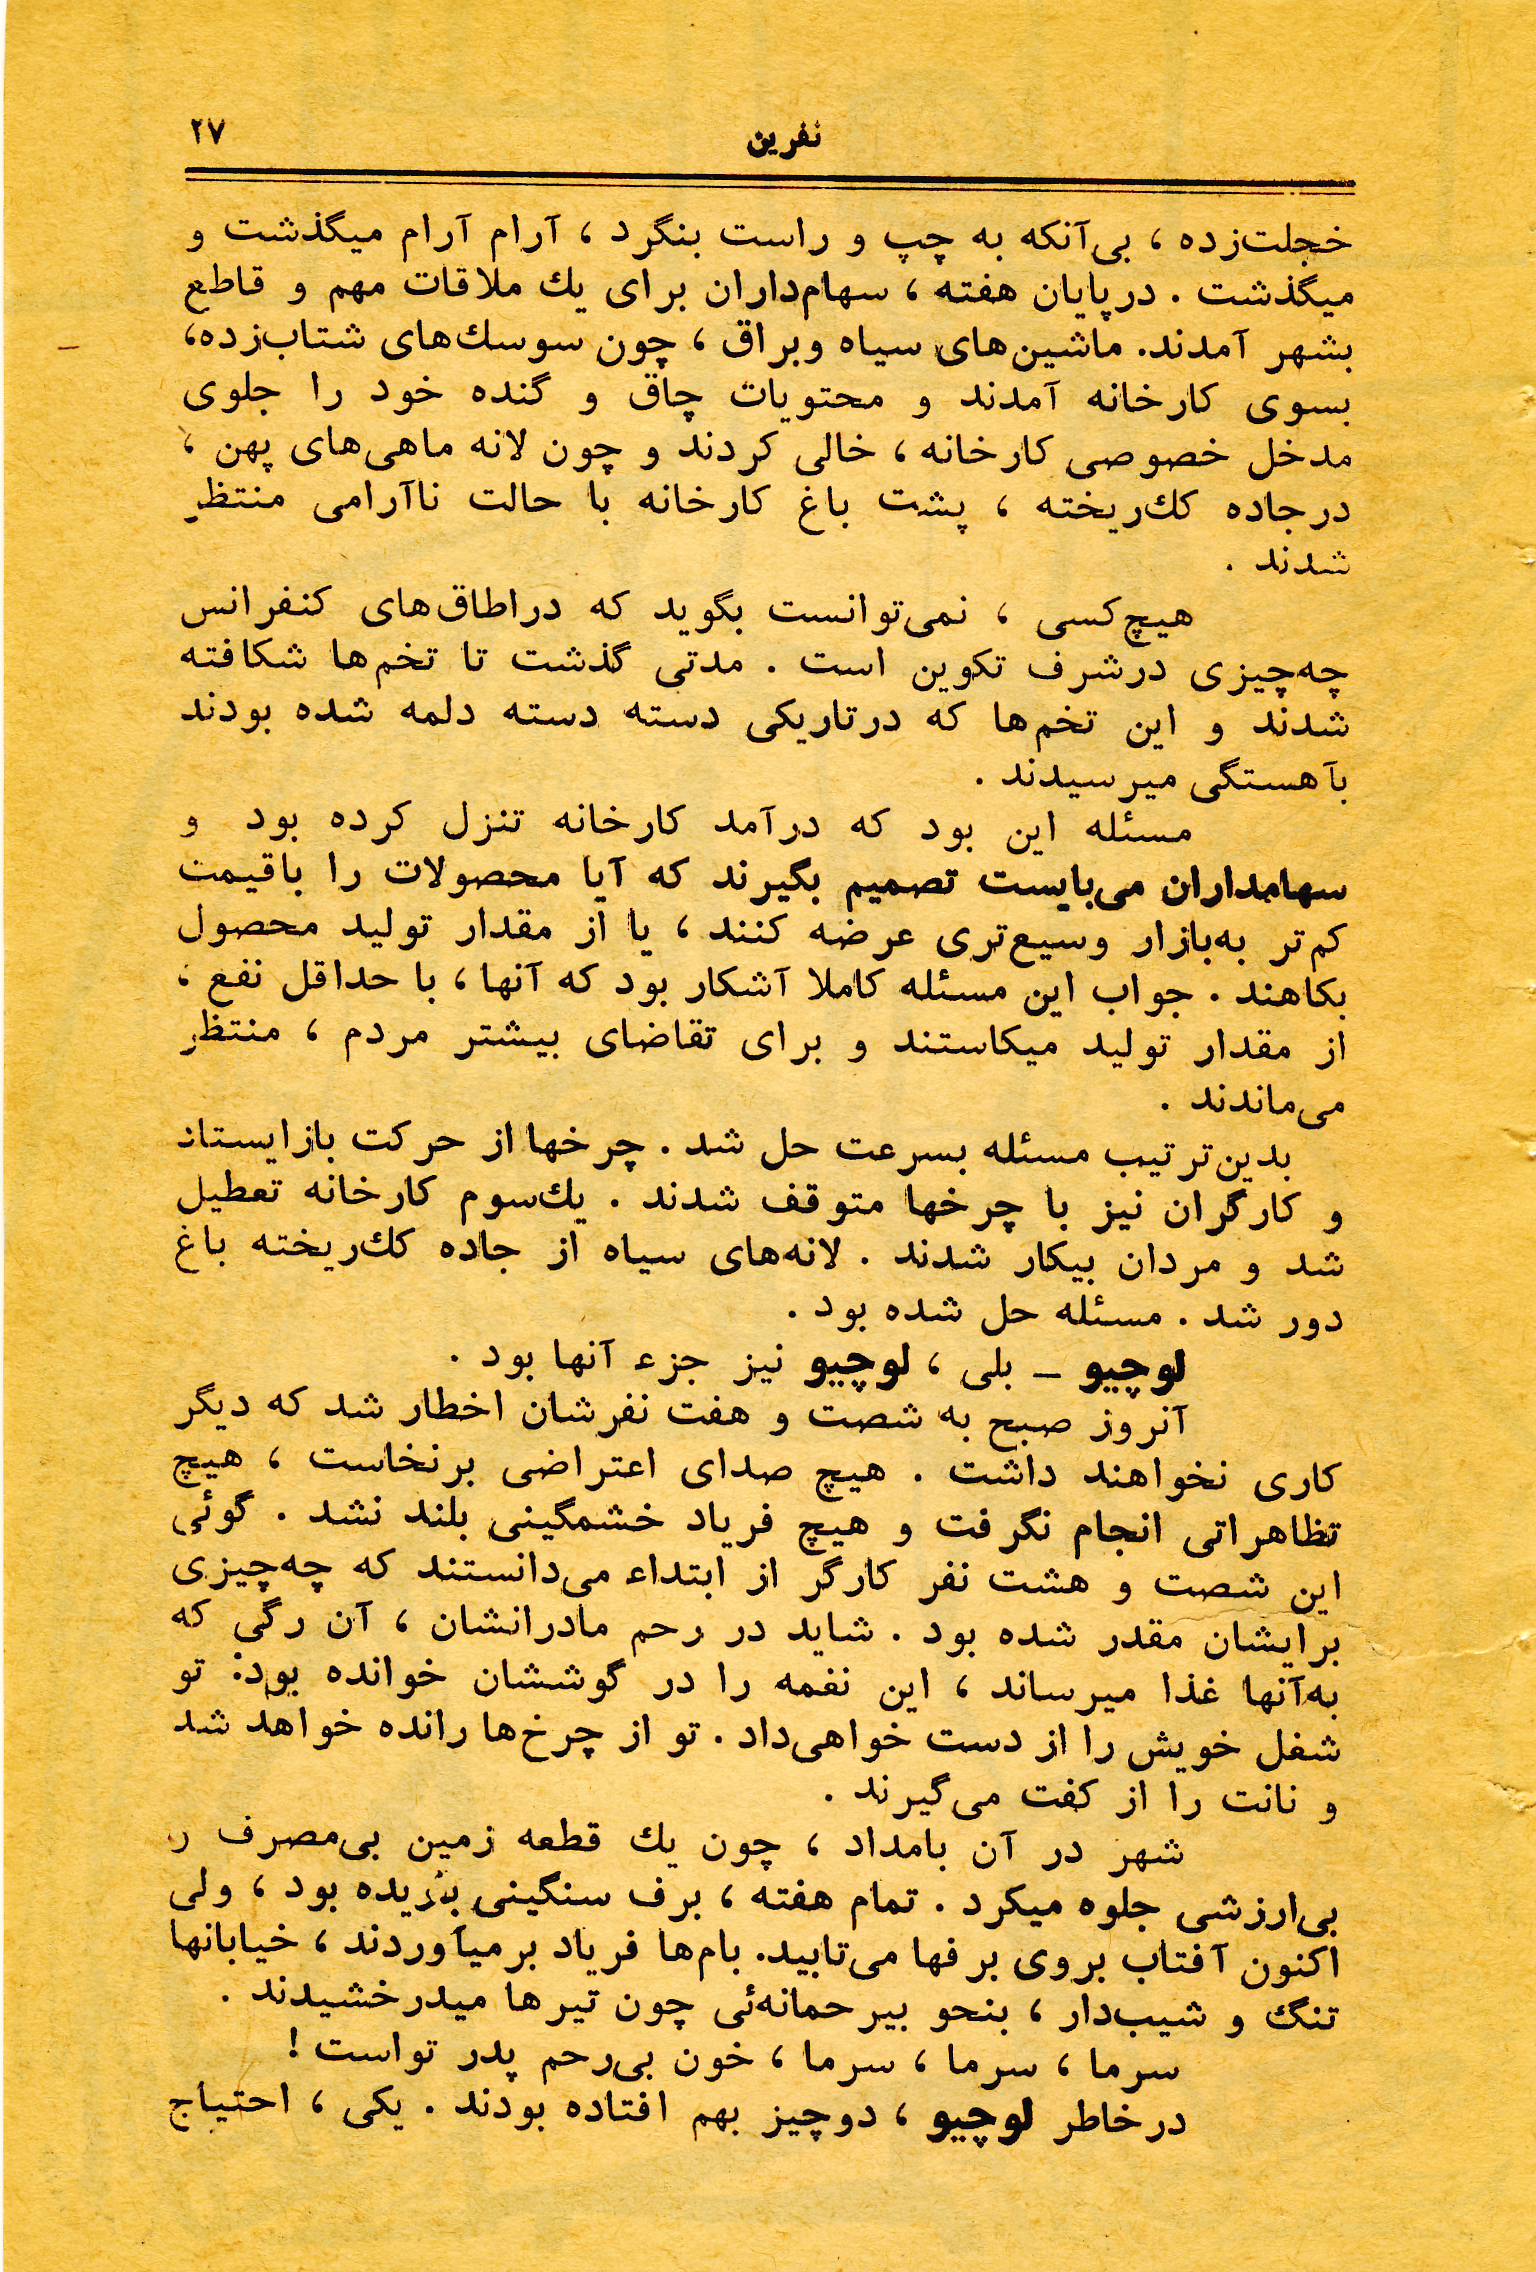 نفرین
۲۷
خجلت‌زده ، بی‌آنکه به چپ و راست بنگرد ، آرام آرام میگذشت و
میگذشت . درپایان هفته ، سهام‌داران برای یك ملاقات مهم و قاطع
بشهر آمدند. ماشین‌های سیاه وبراق ، چون سوسك‌های شتاب‌زده،
بسوی کارخانه آمدند و محتویات چاق و گنده خود را جلوی
مدخل خصوصی کارخانه ، خالی کردند و چون لانه ماهی‌های پهن ،
درجاده کك‌ریخته ، پشت باغ کارخانه با حالت ناآرامی منتظر
شدند .
هیچ‌کسی ، نمی‌توانست بگوید که دراطاق‌های کنفرانس
چه‌چیزی درشرف تکوین است . مدتی گذشت تا تخم‌ها شکافته
شدند و این تخم‌ها که درتاریکی دسته دسته دلمه شده بودند
بآهستگی میرسیدند .
مسئله این بود که درآمد کارخانه تنزل کرده بود و
سهامداران می‌بایست تصمیم بگیرند که آیا محصولات را باقیمت
کم‌تر به‌بازار وسیع‌تری عرضه کنند ، یا از مقدار تولید محصول
بکاهند . جواب این مسئله کاملا آشکار بود که آنها ، با حداقل نفع ،
از مقدار تولید میکاستند و برای تقاضای بیشتر مردم ، منتظر
می‌ماندند .
بدین‌ترتیب مسئله بسرعت حل شد . چرخها از حرکت بازایستاد
و کارگران نیز با چرخها متوقف شدند . یك‌سوم کارخانه تعطیل
شد و مردان بیکار شدند . لانه‌های سیاه از جاده کك‌ریخته باغ
دور شد . مسئله حل شده بود .
لوچیو – بلی ، لوچیو نیز جزء آنها بود .
آنروز صبح به شصت و هفت نفرشان اخطار شد که دیگر
کاری نخواهند داشت . هیچ صدای اعتراضی برنخاست ، هیچ
تظاهراتی انجام نگرفت و هیچ فریاد خشمگینی بلند نشد . گوئی
این شصت و هشت نفر کارگر از ابتداء می‌دانستند که چه‌چیزی
برایشان مقدر شده بود . شاید در رحم مادرانشان ، آن رگی که
به‌آنها غذا میرساند ، این نغمه را در گوششان خوانده بود: تو
شغل خویش را از دست خواهی‌داد . تو از چرخ‌ها رانده خواهد شد
و نانت را از کفت می‌گیرند .
شهر در آن بامداد ، چون یك قطعه زمین بی‌مصرف و
بی‌ارزشی جلوه میکرد . تمام هفته ، برف سنگینی باریده بود ، ولی
اکنون آفتاب بروی برفها می‌تابید. بام‌ها فریاد برمیآوردند ، خیابانها
تنگ و شیب‌دار ، بنحو بیرحمانه‌ئی چون تیرها میدرخشیدند .
سرما ، سرما ، سرما ، خون بی‌رحم پدر تواست !
درخاطر لوچیو ، دوچیز بهم افتاده بودند . یکی ، احتیاج